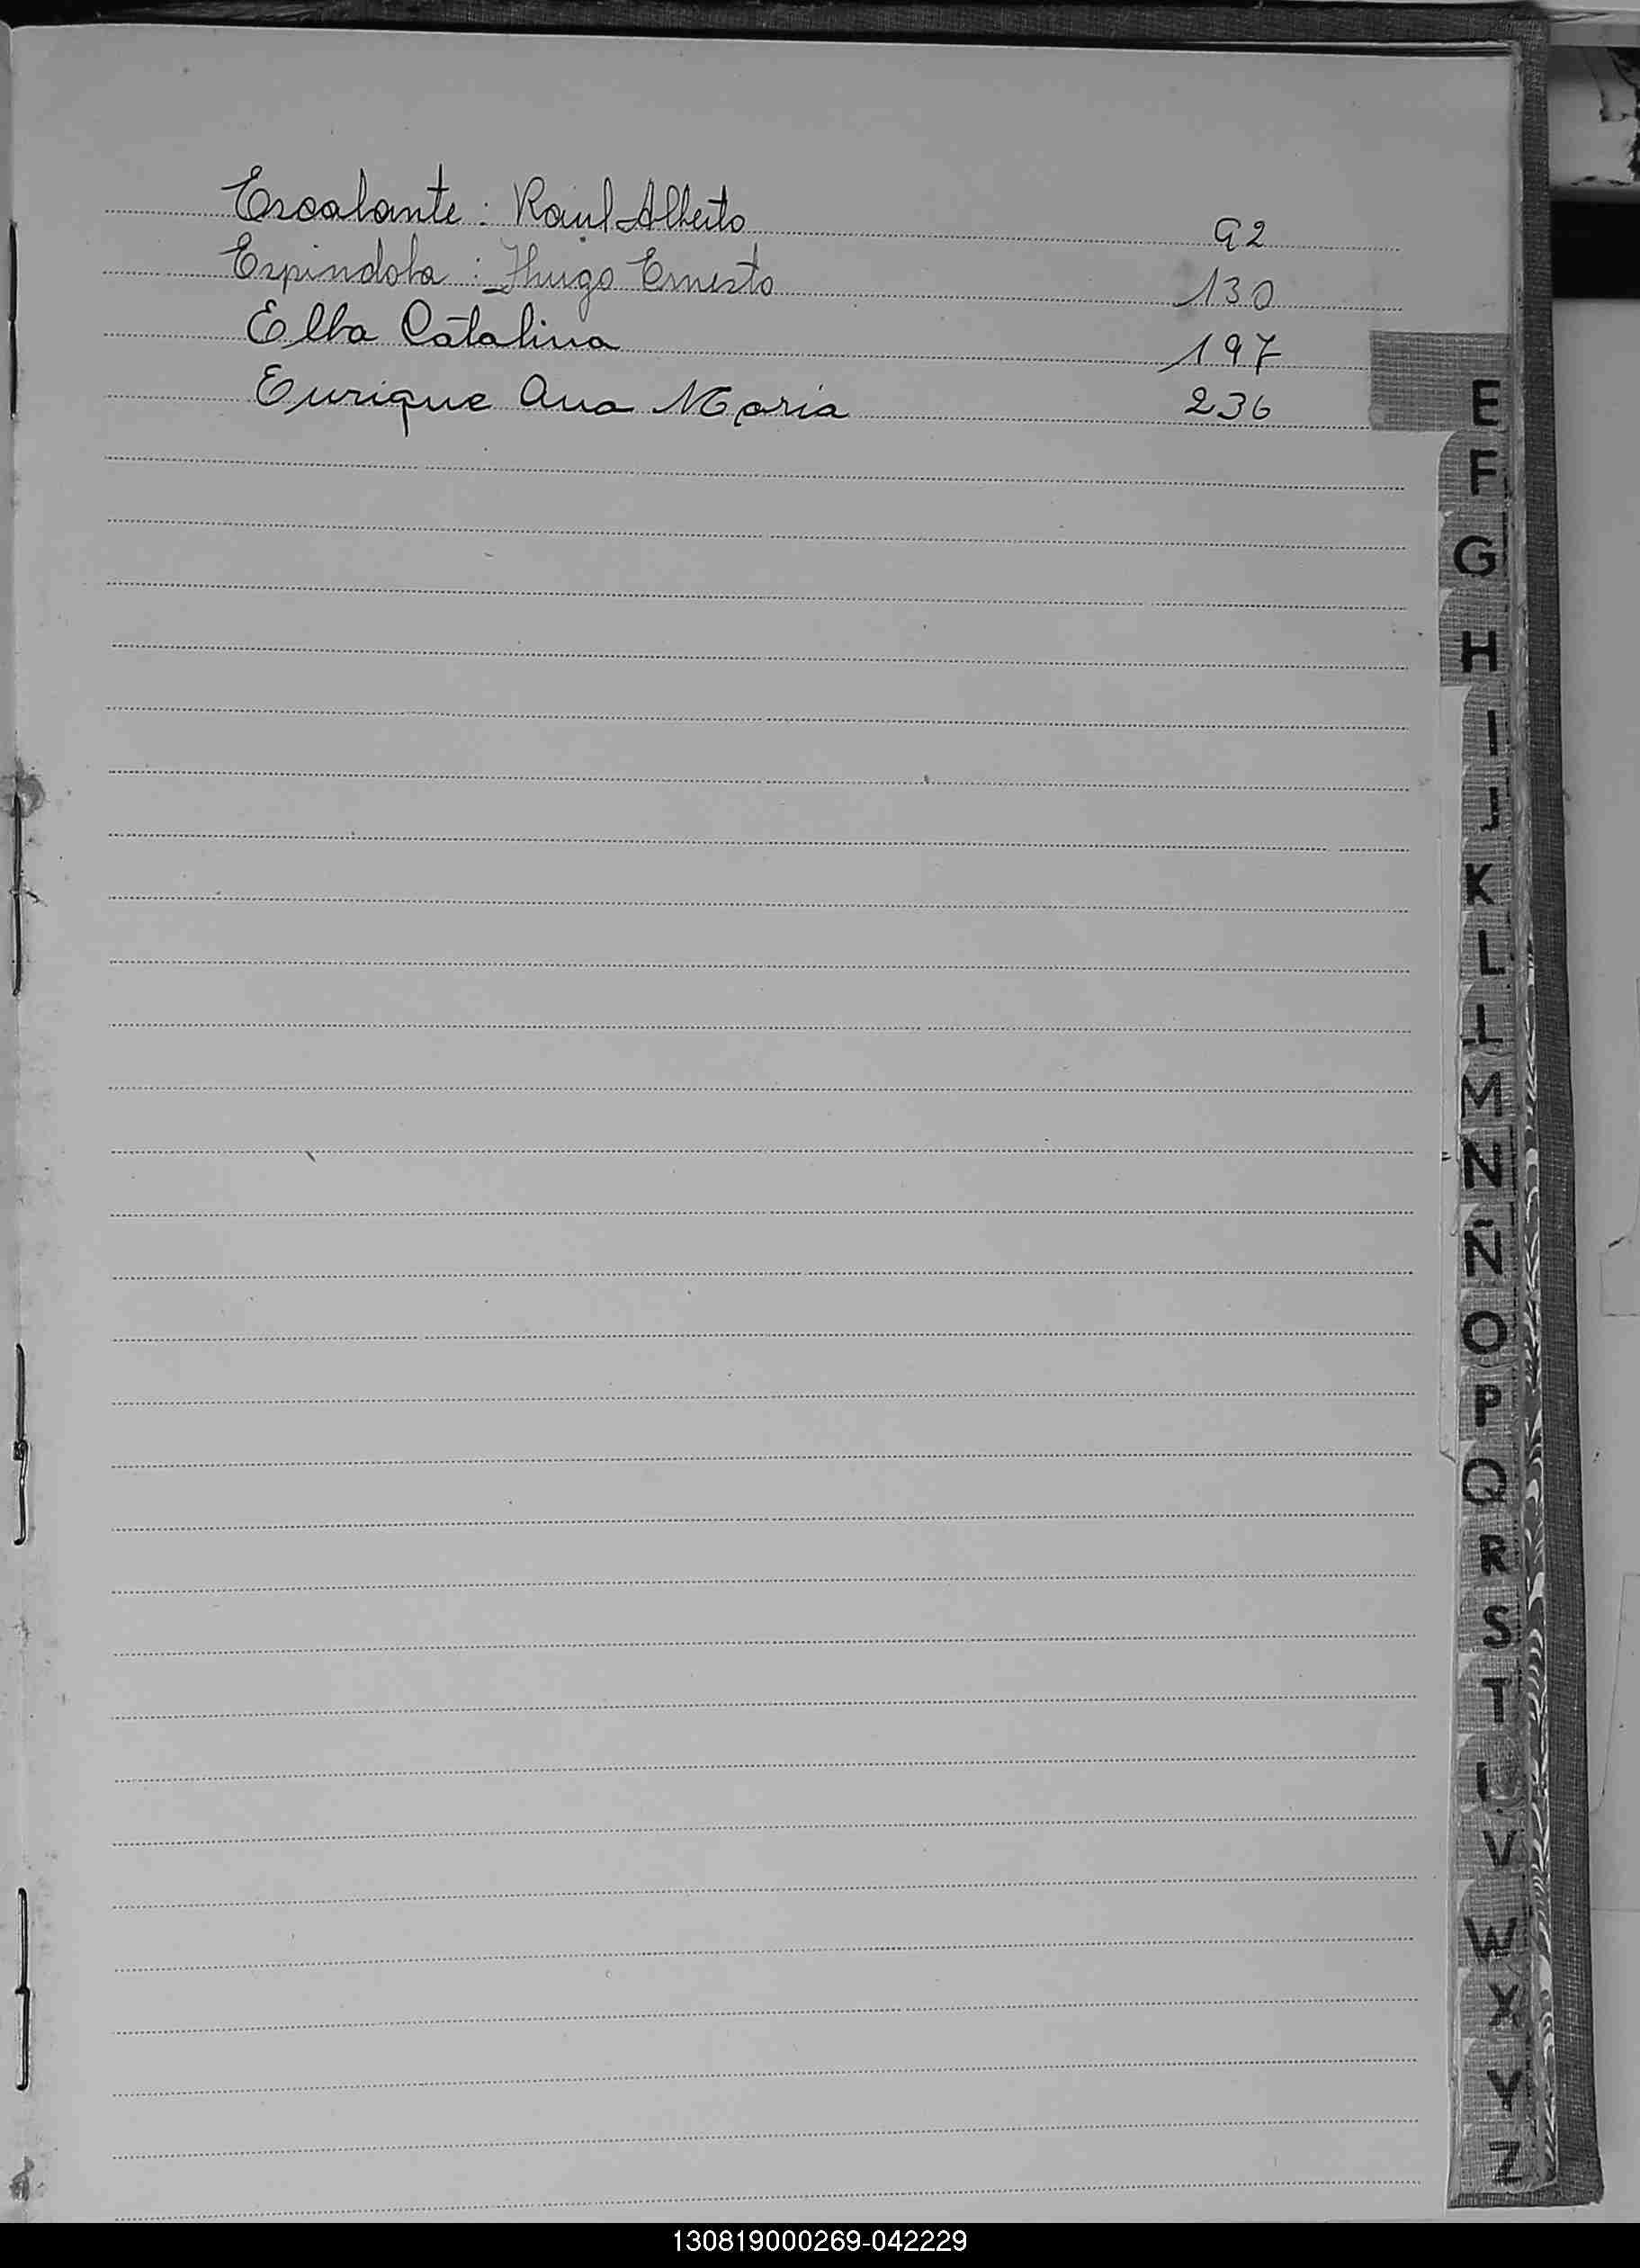 Escalante: Raúl Alberto 92
Espindola: Hugo Ernesto 130
Elba Catalina 197
Enrique Ana Maria 236
E
F
G
H
I
J
K
L
M
N
Ñ
O
P
Q
R
S
T
V
W
X
Y
Z
130819000269-042229